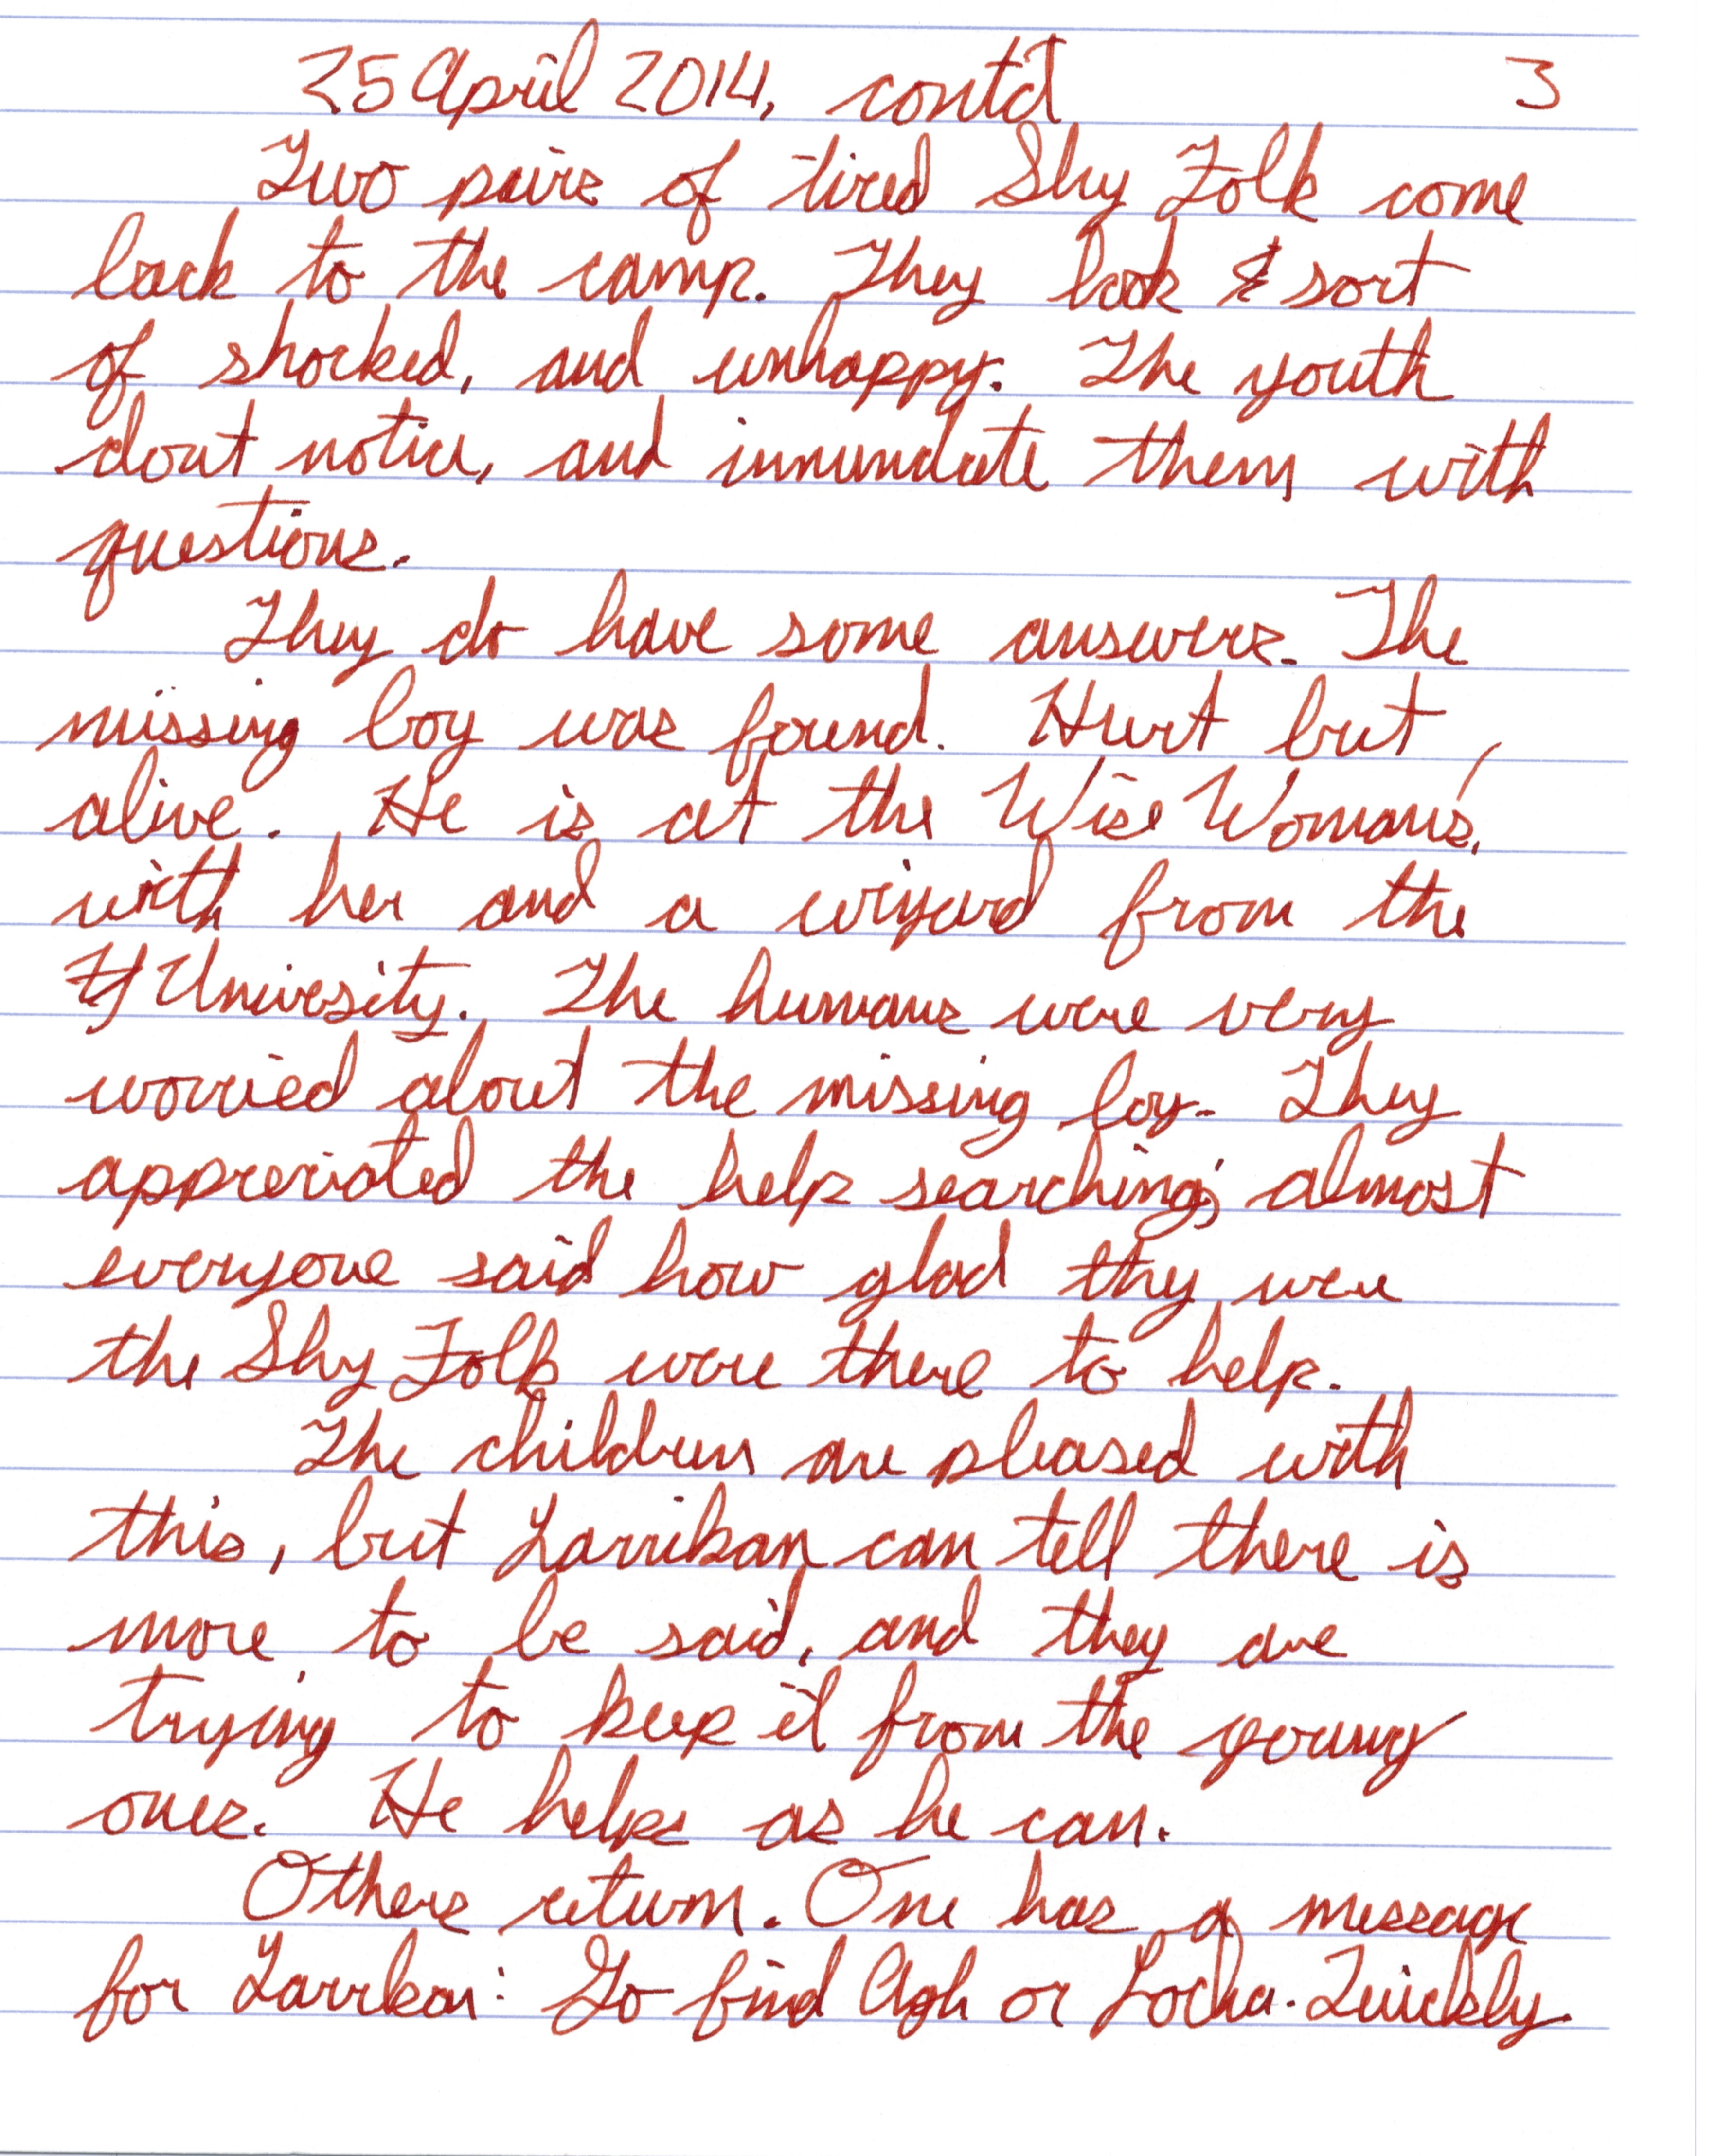 25 April 2014, cont'd 3
Two pairs of tired Shy Folk come
back to the camp. They look sort
of shocked, and unhappy. The youth
dont notice, and innundate them with
questions.
They do have some answers. The
missing boy was found. Hurt but
alive. He is at the Wise Woman's,
with her and a wizard from the
Univesity. The humans were very
worried about the missing boy. They
appreciated the help searching; almost
everyone said how glad thy were
the Shy Folk were there to help.
The children are pleased with
this, but Larrikan can tell there is
more to be said, and they are
trying to keep it from the young
ones. He helps as he can.
Others return. One has a message
for Larrkan: Go find Agh or Locha. Quickly.